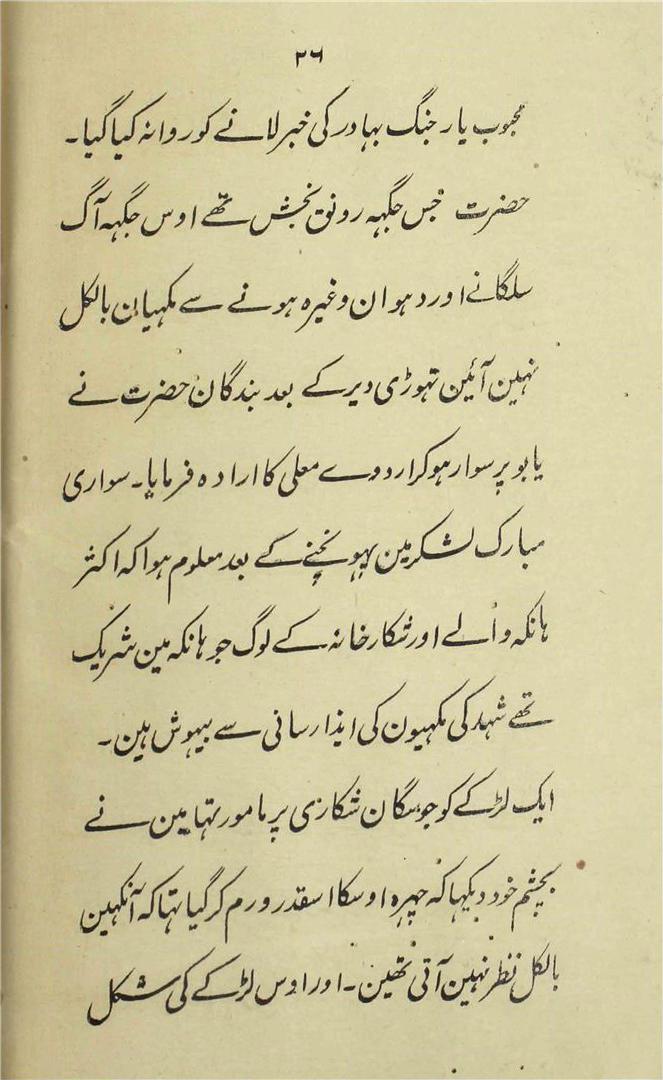 ۲۶
محبوب یار جنگ بہادر کی خبر لانے کو روانہ کیا گیا۔
حضرت جس جگہہ رونق بخش تھے اوس جگہہ آگ
سلگانے اور دہوان وغیرہ ہونے سے مکہیان بالکل
نہین آئین تہوڑی دیر کے بعد بندگان حضرت نے
یابو پر سوار ہو کر اردوے معلی کا ارادہ فرمایا۔ سواری
مبارک لشکر مین پہونچنے کے بعد معلوم ہوا کہ اکثر
ہانکہ والے اور شکار خانہ کے لوگ جو ہانکہ مین شریک
تھے شہد کی مکہیون کی ایذا رسانی سے بیہوش ہین۔
ایک لڑکے کو جو سگان شکاری پر مامور تہا مین نے
بچشم خود دیکہا کہ چہرہ اوسکا اسقدر ورم کر گیا تہا کہ آنکہین
بالکل نظر نہین آتی تھین۔ اور اوس لڑکے کی شکل